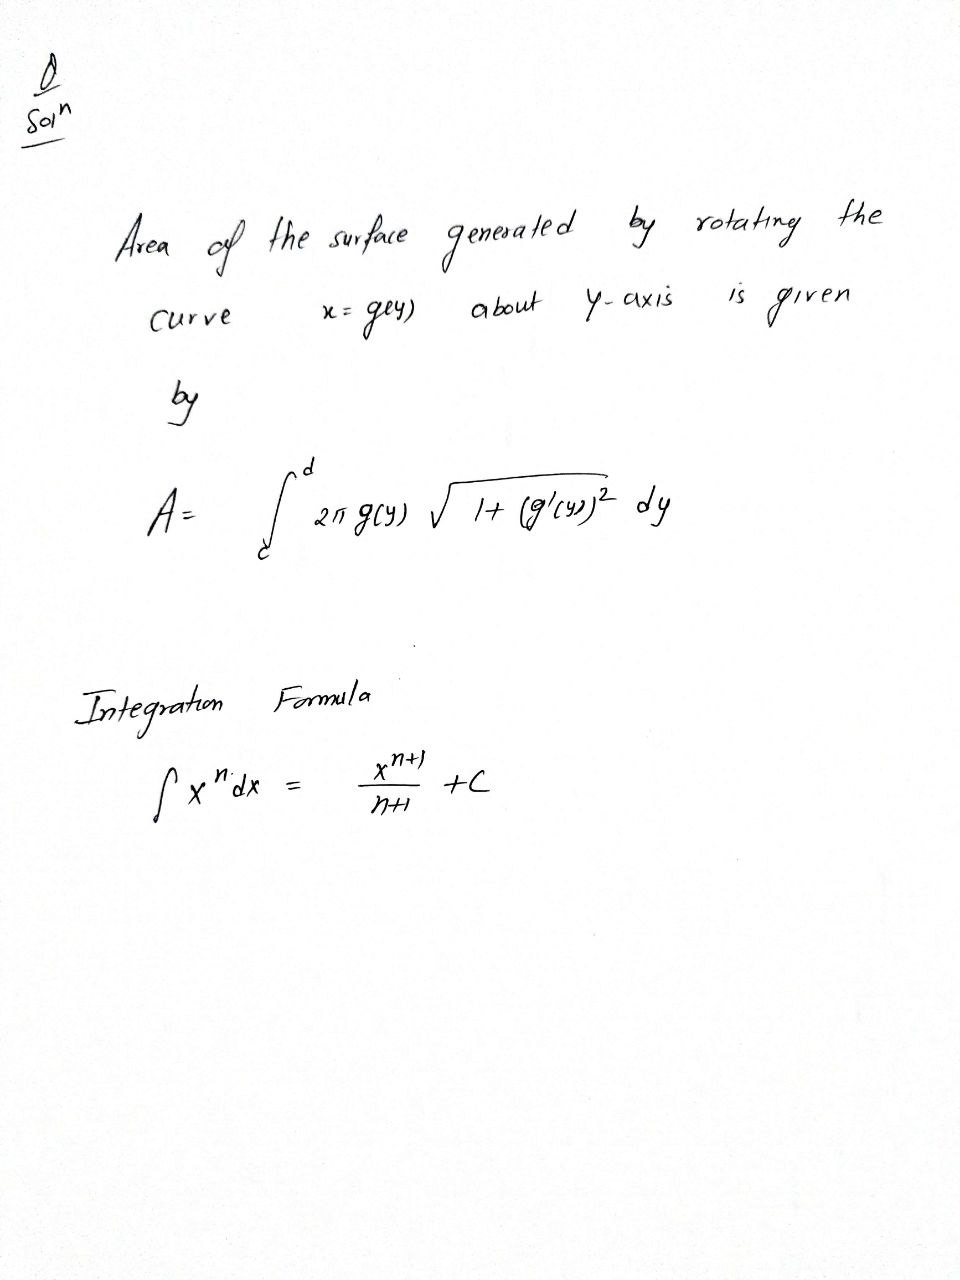 Q
Solⁿ
Area of the surface generated by rotating the
curve x = g(y) about y-axis is given
by
A = ∫_c^d 2π g(y) √(1 + (g'(y))²) dy
Integration Formula
∫ xⁿ dx = xⁿ⁺¹/(n+1) + C